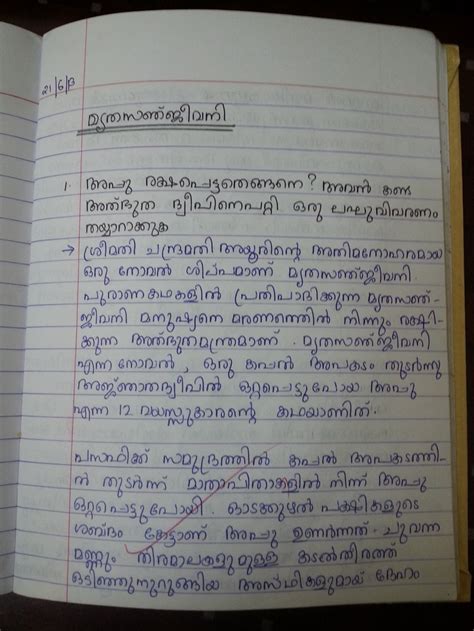 21/6/13
മൃതസഞ്ജീവനി
1. അപ്പു രക്ഷപെട്ടതെങ്ങനെ? അവൻ കണ്ട
അത്ഭുത ദ്വീപിനെപറ്റി ഒരു ലഘുവിവരണം
തയ്യാറാക്കുക
→ ശ്രീമതി ചന്ദ്രമതി അയൂരിന്റെ അതിമനോഹരമായ
ഒരു നോവൽ ശില്പമാണ് മൃതസഞ്ജീവനി.
പുരാണകഥകളിൽ പ്രതിപാദിക്കുന്ന മൃതസഞ്-
ജീവനി മനുഷ്യനെ മരണത്തിൽ നിന്നും രക്ഷി-
ക്കുന്ന അത്ഭുതമന്ത്രമാണ്. മൃതസഞ്ജീവനി
എന്ന നോവൽ, ഒരു കപ്പൽ അപകടം തുടർന്നു
അജ്ഞാതദ്വീപിൽ ഒറ്റപെട്ടുപോയ അപ്പു
എന്ന 12 വയസ്സുകാരന്റെ കഥയാണിത്.
പസഫിക്ക് സമുദ്രത്തിൽ കപ്പൽ അപകടത്തി-
ൽ തുടർന്ന് മാതാപിതാക്കളിൽ നിന്ന് അപ്പു
ഒറ്റപെട്ടുപോയി. ഓടക്കുഴൽ പക്ഷികളുടെ
ശബ്ദം കേട്ടാണ് അപ്പു ഉണർന്നത്. ചുവന്ന
മണ്ണും തിരമാലകളുമുള്ള കടൽതീരത്ത്
ഒടിഞ്ഞുനുറുങ്ങിയ അസ്ഥികളുമായ് ദേഹം